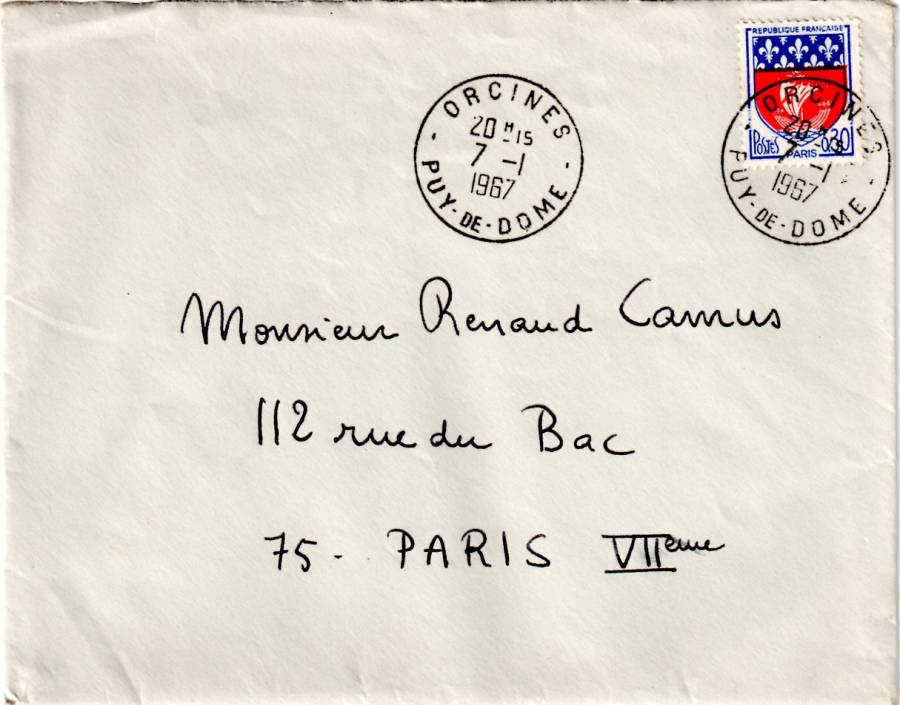 REPUBLIQUE FRANÇAISE
POSTES 0,30
PARIS
- ORCINES -
20 H 15
7 -1
1967
PUY-DE-DOME
- ORCINES -
20 H 15
7 -1
1967
PUY-DE-DOME
Monsieur Renaud Camus
112 rue du Bac
75 - PARIS VIIeme